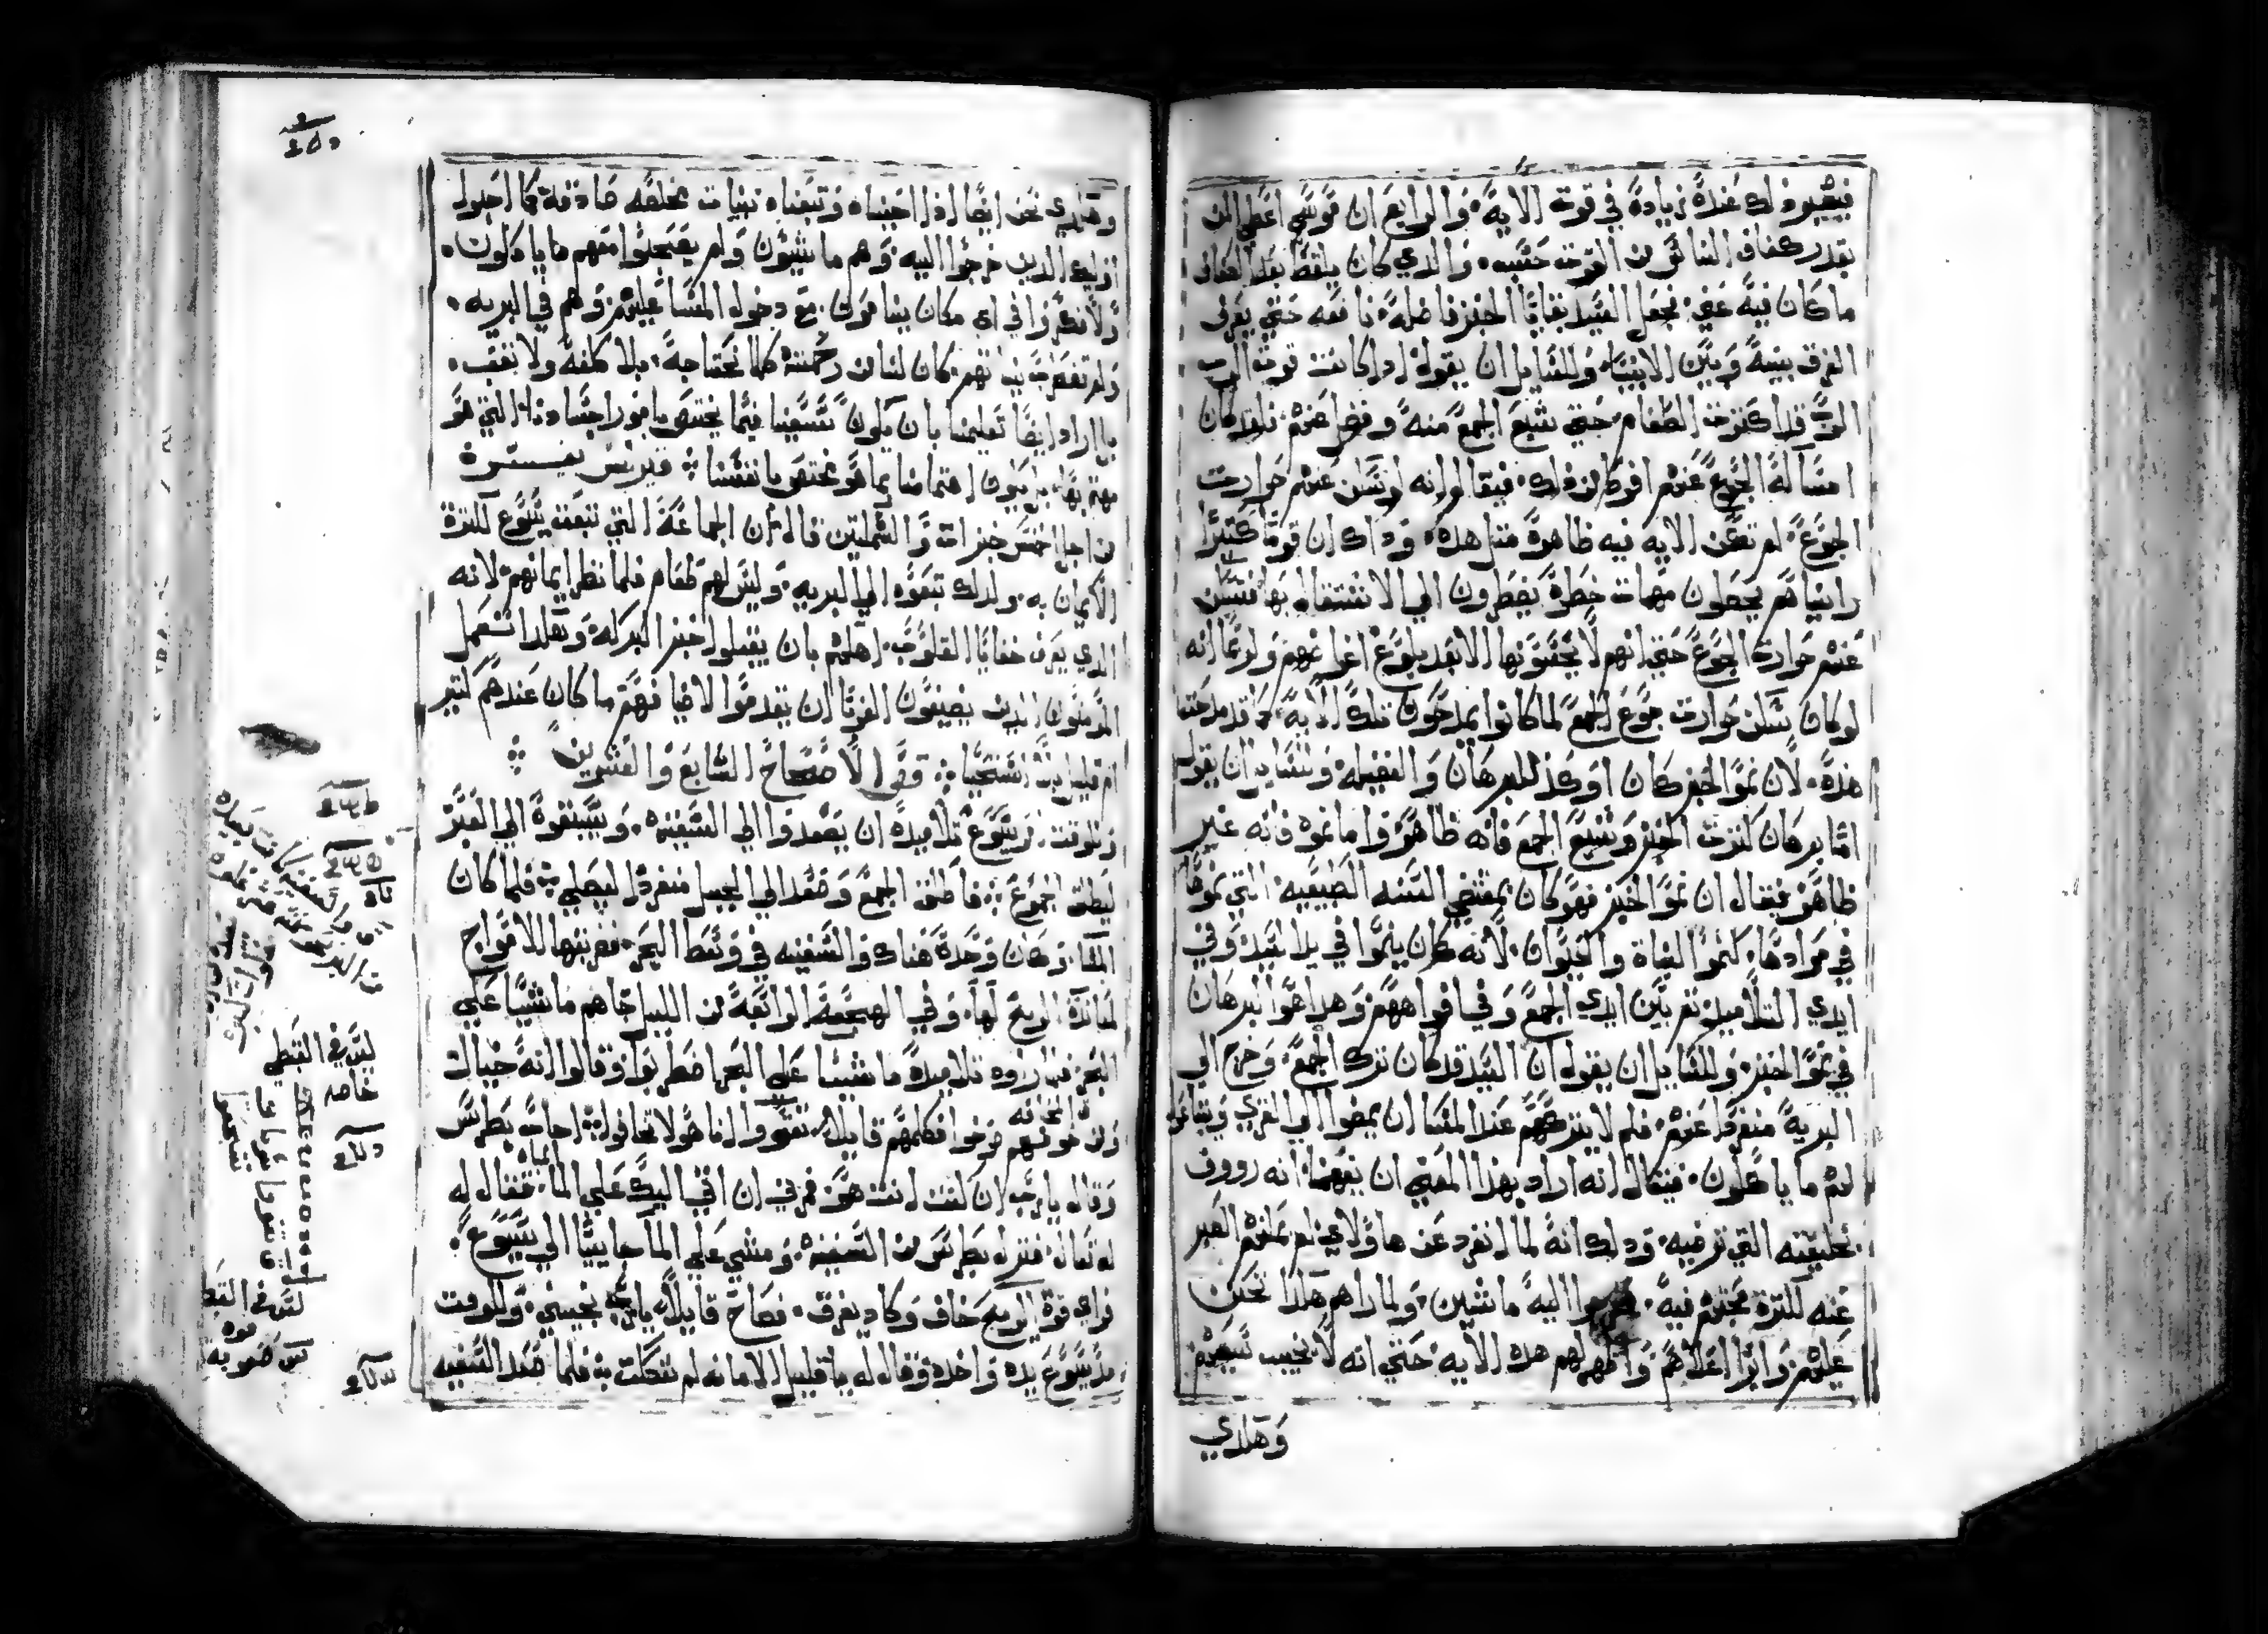 فيصير ذلك عنده زيادة في قوت الايه والرابع ان موسي اعطي المن
بقدر كفاف الناس من القوت حسبه والدي كان يلتقط بعد الكفاف
ما كان فيه غني فجعل السيد بقايا الخبز فاضله نافعه حتي يعرف
الفرق بينه وبين الانبيا وللسايل ان يقول اداكانت قوت الرب
الرب قد اكترت الطعام حتي شبع الجمع منه وفضل عنهم فلقد كان
امساكه الجوع عنهم افضل من دلك فيقال انه لو سكن عنهم حرارت
الجوع لم تكن الايه فيه ظاهرة متل هده وداك ان قوما كتيرا
راينا هم يحصلون مهمات خطرة يضطرون الي الاشتغال بها فتسكن
عنهم حرارت الجوع حتي انهم لا يحسونها الا بعد بلوغ اغراضهم ولو انه
لوكان سكن حرارت جوع الجمع لما كانوا يمدحون تلك الايه كما قد مدحتها
هده لان نمو الخبز كان اوكد للبرهان والفضيله وللسايل ان يقول
اما برهان كترت الخبز وشبع الجمع فانه ظاهر واما نموه فانه غير
ظاهر فيقال ان نمو الخبز فهو كان بمقتضي السنه الطبيعيه التي نموها
في موادها كنمو النبات والحيوان لانه كان ينموا في يد السيد وفي
ايدي التلاميد تم بين ايدي الجمع وفي افواههم وهدا هو البرهان
في نمو الخبز وللسايل ان يقول ان السيد قد كان ترك الجمع وخرج الي
البرية منفردا عنهم فلم لا يتركهم عند المسا ان يمضوا الي القري ويبتاعوا
لهم ما ياكلون فيقال انه اراد بهدا المعني ان يفهمنا انه رووف
بخليقته التي ترضيه ودلك انه لما انفرد عن هاولاي لم يمكنهم الصبر
عنه لكترة محبتهم فيه فخرجوا اليه ماشين ولما راهم هكدا تحنن
عليهم وابرا اعلاهم واظهر لهم هده الايه حتي انه لا يخيب سعيهم
وهكدي
وهكدي نحن ايضا ادا احببناه وتبعناه بنيات مخلصه صادقة كما احبوا
اوليك الدين خرجوا اليه وهم ماشيون ولم يصحبوا معهم ما ياكلون
ولا نظروا في اي مكان يناموني مع دخول المسا عليهم وهم في البريه
ولم تضطرب نياتهم كان لنا من رحمته كلما نحتاجه بلا كلفه ولا تعب
اراد ايضا تعليمنا بان يكون سعينا فيما يختص بامور اجسادنا التي
اهتمامنا بما هو مختص بانفسنا قيرلس تفسرة
من اجل الخمس خبزات والسمكتين قال ان الجماعة التي تبعت يسوع لكترة
الايمان به ولدلك تبعوه الي البريه وليس لهم طعام فلما نظر ايمانهم لانه
الدي يعرف خفايا القلوب اهلهم بان يقبلوا خبز البركه وهكدا تعمل
المومنون الدين يضيفون الغربا ان يقدموا الاضيا فهم ما كان عندهم كتير
ام قليل بلا استحيا قوله الاصحاح السابع والعشرين
وللوقت امر يسوع تلاميده ان يصعدوا الي السفينه ويسبقوة الي العبر
ليطلق الجموع فاطلق الجمع وصعد الي الجبل منفردا ليصلي فلما كان
المسا وكان وحده هناك والسفينه في وسط البحر فضربتها الامواج
لمعاندة الريح لها وفي الهجعة الرابعة من الليل جاهم ماشيا علي
البحر فلما راوه تلاميدة ماشيا علي البحر اضطربوا وقالوا انه خيال
ومن خوفهم صرخوا فكلمهم قايلا تقووا انا هو لا تخافوا اجاب بطرس
وقال يارب ان كنت انت هو فمرني ان اتي اليك علي الما فقال له
تعال فنزل بطرس من السفينة ومشي علي الما جاييا الي يسوع
فراي قوة الريح خاف وكاد يغرق فصاح قايلا يارب نجيني وللوقت
مد يسوع يده واخده وقال له ياقليل الامانه لم تشككت فلما صعد السفينه
ليس في القبطي
خاصه
ليس في القبطي